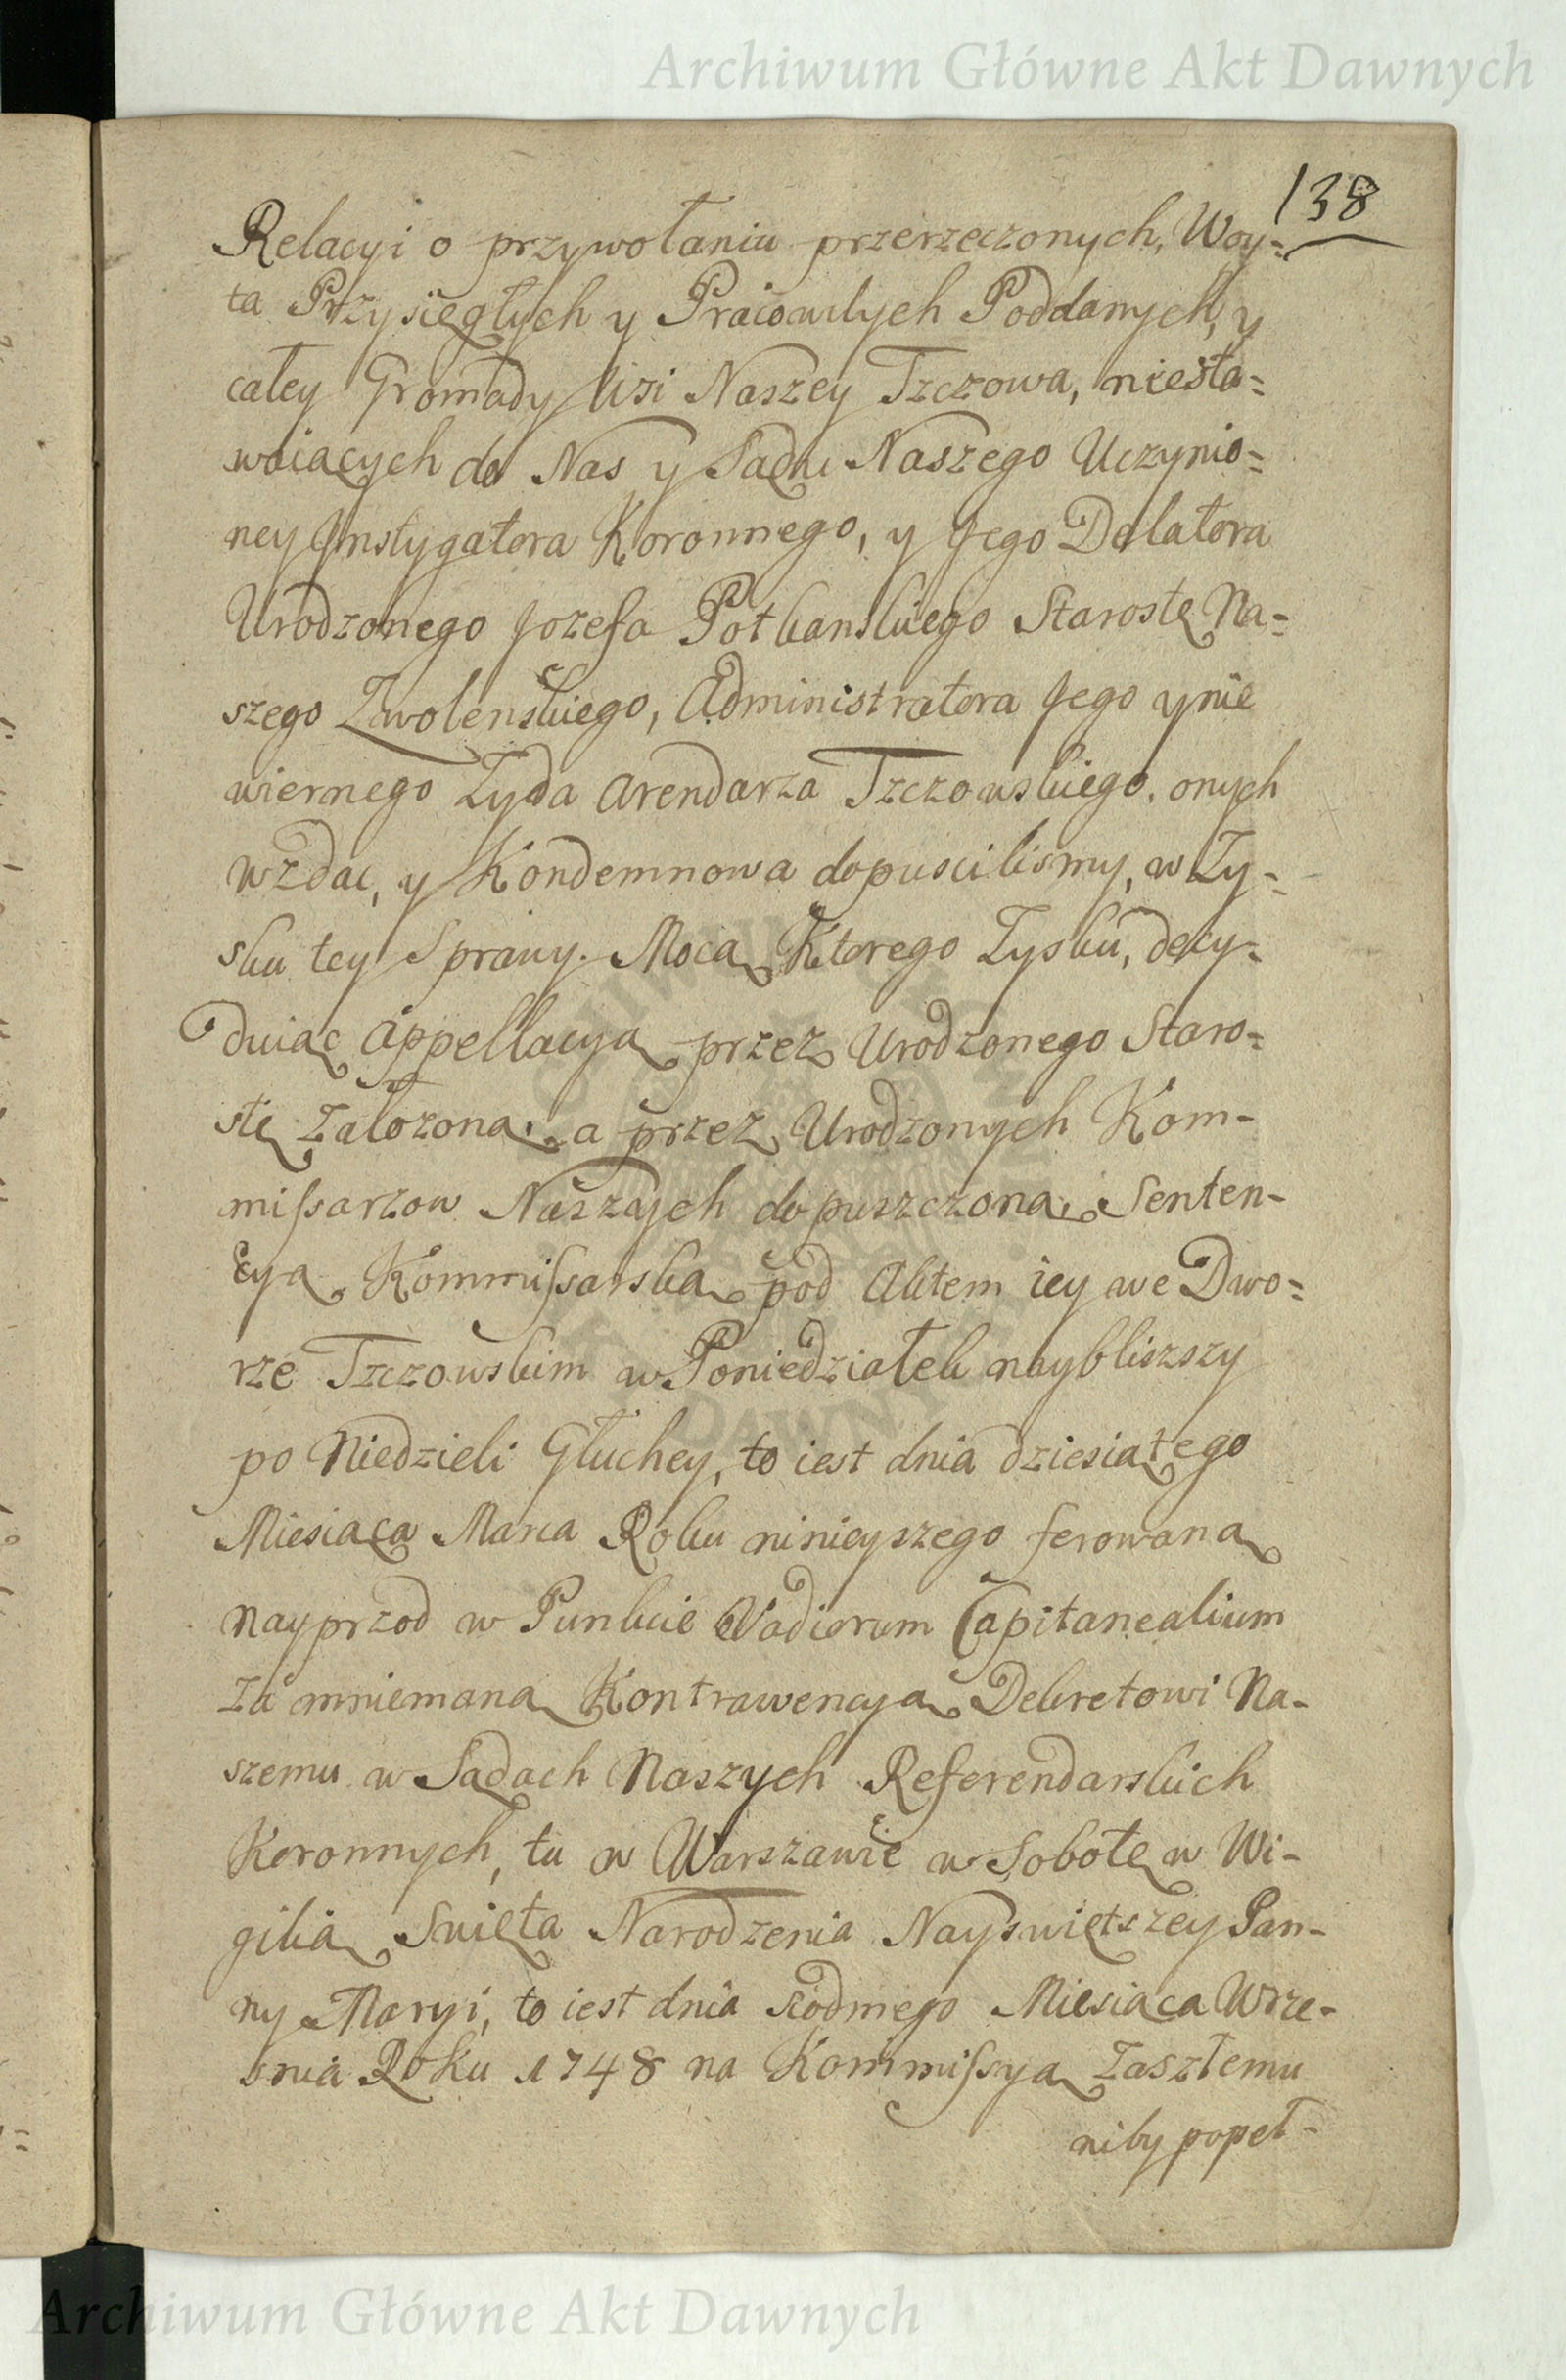 Archiwum Główne Akt Dawnych
138
Relacyi o przywołaniu przerzeczonych, Woy=
ta Przysięgłych y Pracowitych Poddanych, y
całey Gromady Wsi Naszey Tzczowa, niesta=
waiących do Nas y Sądu Naszego Uczynio=
ney Instygatora Koronnego, y Jego Delatora
Urodzonego Jozefa Potkanskiego Starostę Na=
szego Zwolenskiego, Administratora Jego y nie
wiernego Zyda Arendarza Tzczowskiego, onych
wzdac, y Kondemnowa dopuscilismy, w Zy=
sku tey Sprawy. Mocą Ktorego Zysku, decy-
duiąc Appellacyą przez Urodzonego Staro=
stę Załozoną, a przez Urodzonych Kom-
missarzow Naszych dopuszczoną, Senten-
cyą Kommissarską pod Aktem iey we Dwo=
rze Tzczowskim w Poniedziałek naybliszszy
po Niedzieli Głuchey, to iest dnia dziesiątego
Miesiąca Marca Roku ninieyszego ferowaną
nayprzod w Punkcie Vadiorum Capitanealium
za mniemaną Kontrawencyą Dekretowi Na-
szemu w Sądach Naszych Referendarskich
Koronnych, tu w Warszawie w Sobotę w Wi-
gilią Swięta Narodzenia Nayswiętszey Pan-
ny Maryi, to iest dnia siodmego Miesiąca Wrze-
snia Roku 1748 na Kommissyą Zaszłemu
niby popeł-
Archiwum Główne Akt Dawnych